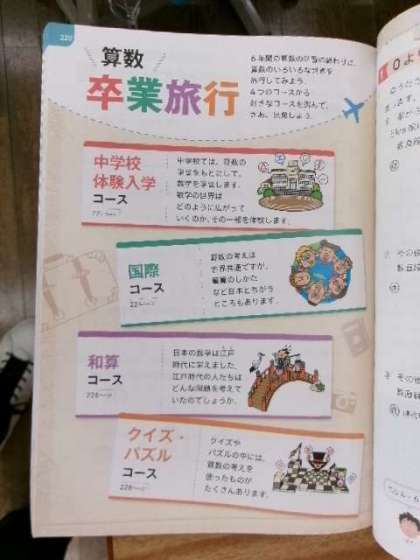 220
算数
卒業旅行
6年間の算数の学習の終わりに、
算数のいろいろな世界を
旅行してみよう。
4つのコースから
好きなコースを選んで、
さあ、出発しよう。
中学校
体験入学
コース
中学校では、算数の
学習をもとにして、
数学を学習します。
数学の世界は
どのように広がって
いくのか、その一部を体験します。
国際
コース
算数の考えは
世界共通ですが、
筆算のしかた
など日本とちがう
ところもあります。
和算
コース
226ページ
日本の数学は江戸
時代に栄えました。
江戸時代の人たちは
どんな問題を考えて
いたのでしょうか。
クイズ・
パズル
コース
228ページ
クイズや
パズルの中には、
算数の考えを
使ったものが
たくさんあります。